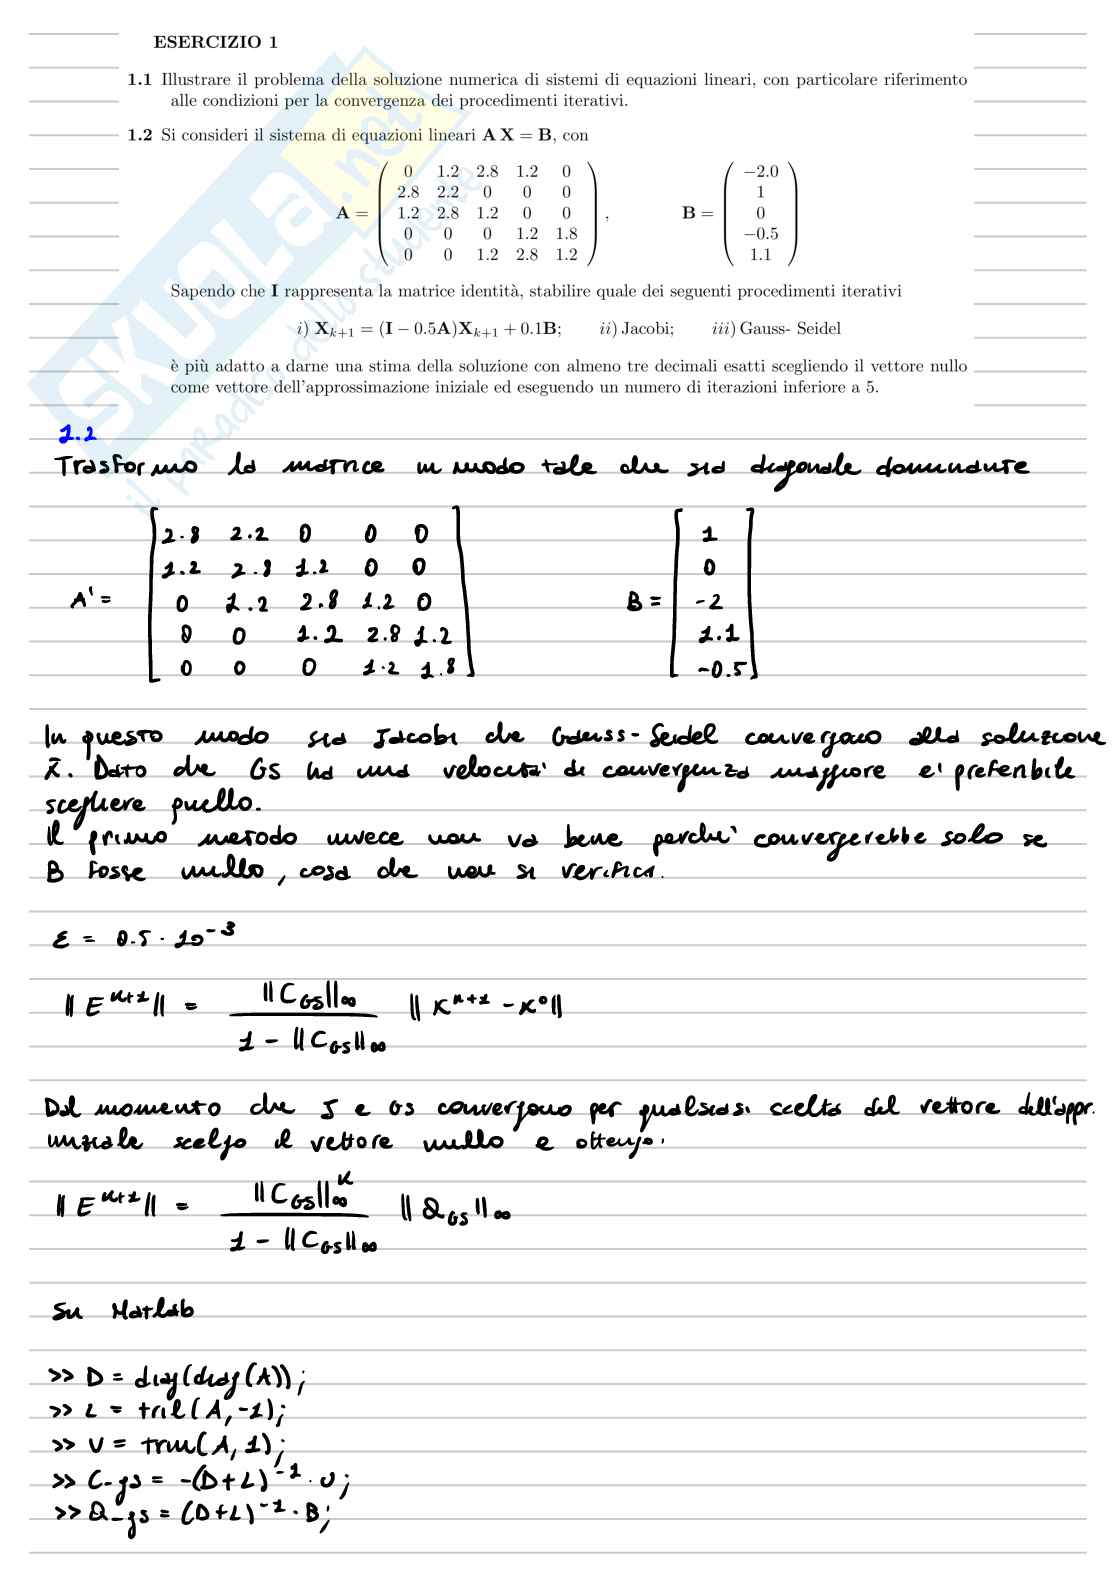 ESERCIZIO 1
1.1 Illustrare il problema della soluzione numerica di sistemi di equazioni lineari, con particolare riferimento
alle condizioni per la convergenza dei procedimenti iterativi.
1.2 Si consideri il sistema di equazioni lineari A X = B, con
A = ( 0 1.2 2.8 1.2 0
2.8 2.2 0 0 0
1.2 2.8 1.2 0 0
0 0 0 1.2 1.8
0 0 1.2 2.8 1.2 ) ,
B = ( −2.0
1
0
−0.5
1.1 )
Sapendo che I rappresenta la matrice identità, stabilire quale dei seguenti procedimenti iterativi
i) X_{k+1} = (I − 0.5A)X_{k+1} + 0.1B; ii) Jacobi; iii) Gauss- Seidel
è più adatto a darne una stima della soluzione con almeno tre decimali esatti scegliendo il vettore nullo
come vettore dell'approssimazione iniziale ed eseguendo un numero di iterazioni inferiore a 5.
SKUOLA.net
il paradiso dello studente
1.2
Trasformo la matrice in modo tale che sia diagonale dominante
A' = [ 2.8 2.2 0 0 0
1.2 2.8 1.2 0 0
0 1.2 2.8 1.2 0
0 0 1.2 2.8 1.2
0 0 0 1.2 1.8 ]
B = [ 1
0
-2
1.1
-0.5 ]
In questo modo sia Jacobi che Gauss-Seidel convergono alla soluzione
x̄. Dato che GS ha una velocità di convergenza maggiore e' preferibile
scegliere quello.
Il primo metodo invece non va bene perche' convergerebbe solo se
B fosse nullo, cosa che non si verifica.
ε = 0.5 · 10⁻³
‖E^{k+1}‖ = ‖C_GS‖∞ / (1 - ‖C_GS‖∞) ‖x^{k+1} - x^0‖
Dal momento che J e GS convergono per qualsiasi scelta del vettore dell'appr.
iniziale scelgo il vettore nullo e ottengo:
‖E^{k+1}‖ = ‖C_GS‖∞^k / (1 - ‖C_GS‖∞) ‖Q_GS‖∞
Su Matlab
>> D = diag(diag(A));
>> L = tril(A,-1);
>> U = triu(A,1);
>> C-gs = -(D+L)^{-1} · U;
>> Q-gs = (D+L)^{-1} · B;